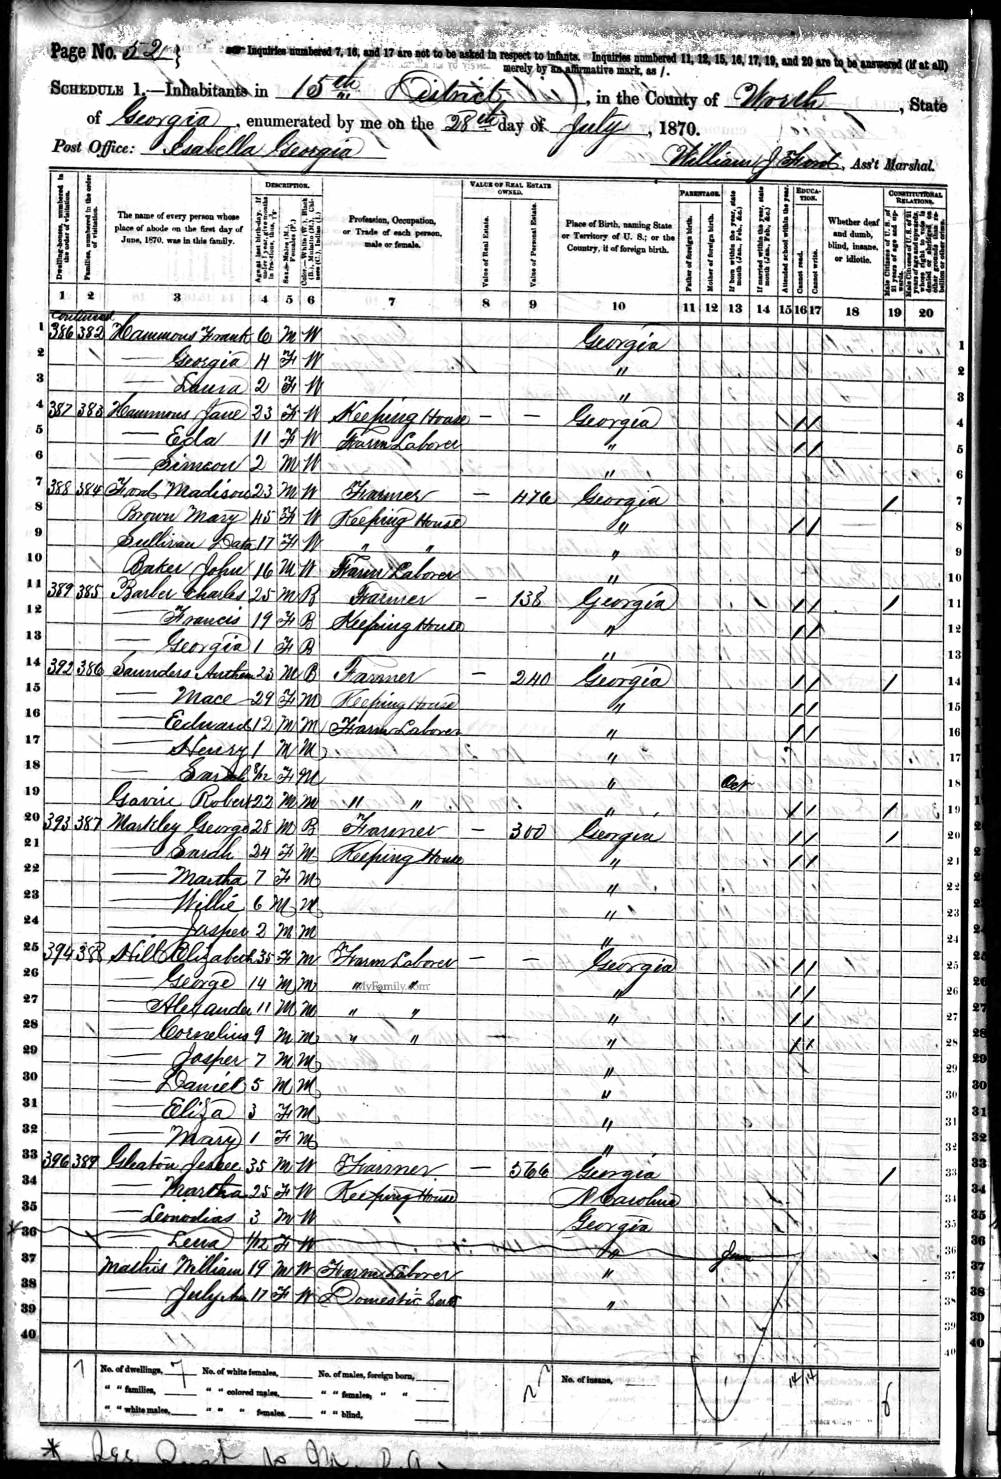 Page No. 52
Inquiries numbered 7, 16, and 17 are not to be asked in respect to infants. Inquiries numbered 11, 12, 15, 16, 17, 19, and 20 are to be answered (if at all)
merely by an affirmative mark, as /.
SCHEDULE 1.—Inhabitants in 15th District, in the County of Worth, State
of Georgia, enumerated by me on the 28th day of July, 1870.
Post Office: Isabella Georgia
William J Ford, Ass't Marshal.
DESCRIPTION. VALUE OF REAL ESTATE OWNED. PARENTAGE. EDUCATION. CONSTITUTIONAL RELATIONS.
Dwelling-houses, numbered in the order of visitation.
Families, numbered in the order of visitation.
The name of every person whose place of abode on the first day of June, 1870, was in this family.
Profession, Occupation, or Trade of each person, male or female.
Value of Real Estate.
Value of Personal Estate.
Place of Birth, naming State or Territory of U. S.; or the Country, if of foreign birth.
Father of foreign birth.
Mother of foreign birth.
Attended school within the year.
Cannot read.
Cannot write.
Whether deaf and dumb, blind, insane, or idiotic.
1 2 3 4 5 6 7 8 9 10 11 12 13 14 15 16 17 18 19 20
Continued
1 386 382 Hammons Frank 6 M W Georgia 1
2 — Georgia 4 F W " 2
3 — Laura 2 F W " 3
4 387 383 Hammons Jane 23 F W Keeping House — — Georgia / / 4
5 — Eda 11 F W Farm Laborer " / / 5
6 — Simeon 2 M W " 6
7 388 384 Ford Madison 23 M W Farmer — 476 Georgia / 7
8 Brown Mary 45 F W Keeping House " / / 8
9 Sullivan 17 F W " " " 9
10 Baker John 16 M W Farm Laborer " 10
11 389 385 Barber Charles 25 M B Farmer — 138 Georgia / / / 11
12 — Francis 19 F B Keeping House " / / 12
13 — Georgia 1 F B " 13
14 392 386 Saunders 23 M B Farmer — 240 Georgia / / / 14
15 — Mace 29 F M Keeping House " / / 15
16 — Edward 12 M M Farm Laborer " / / 16
17 — Henry 1 M M " 17
18 — Sarah F M " Oct 18
19 Robert 22 M M " " " / / / 19
20 393 387 Markley George 28 M B Farmer — 300 Georgia / / / 20
21 — Sarah 24 F M Keeping House " / / 21
22 — Martha 7 F M " 22
23 — Willie 6 M M " 23
24 — Jasper 2 M M " 24
25 394 388 Hill Elizabeth 35 F M Farm Laborer — — Georgia / / 25
26 — George 14 M M " " " / / 26
MyFamily.com
27 — Alexander 11 M M " " " / / 27
28 — Cornelius 9 M M " " " / / 28
29 — Jasper 7 M M " 29
30 — Daniel 5 M M " 30
31 — Eliza 3 F M " 31
32 — Mary 1 F M " 32
33 396 389 Gleaton Jessee 35 M W Farmer — 566 Georgia / 33
34 — Martha 25 F W Keeping House N Carolina 34
35 — Leonodias 3 M W Georgia 35
36 — Lena 1/12 F W " June 36
37 Mathis William 19 M W Farm Laborer " 37
38 — July Ann 17 F W Domestic Servt " 38
39 39
40 40
No. of dwellings, 7 No. of white females, No. of males, foreign born, No. of insane,
" " families, " " colored males, " " females, " "
" " white males, " " " females. " " blind,
14 14